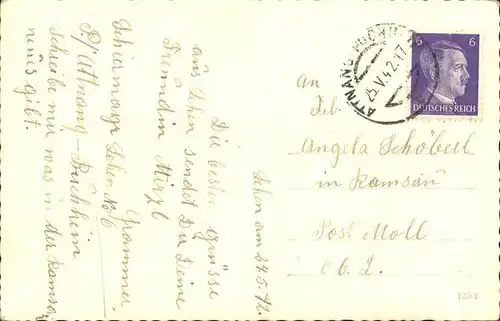 Lehen am 24.5.42.
Die besten Grüsse
aus Lehen sendet Dir Deine
Freundin Mirzl
Grammer.
Schiermayr Lehen No 6
P. Attnang-Buchheim
Schreibe mir was in der Ramsau
neus gibt.
ATTNANG-PUCHHEIM
25.V.42.17
6 6
DEUTSCHES REICH
An
Frl.
Angela Schöberl
in Ramsau
Post Molln
Ob. D.